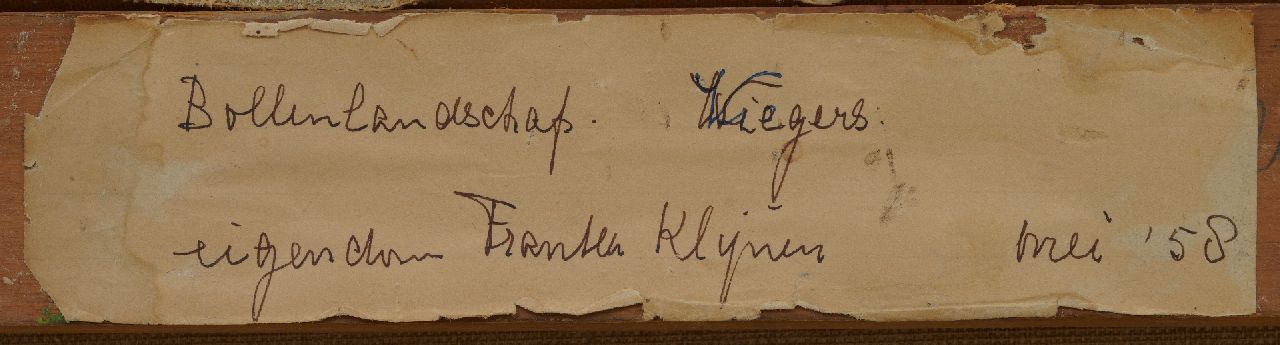 Bollenlandschap. Wiegers.
eigendom Klijnen mei '58